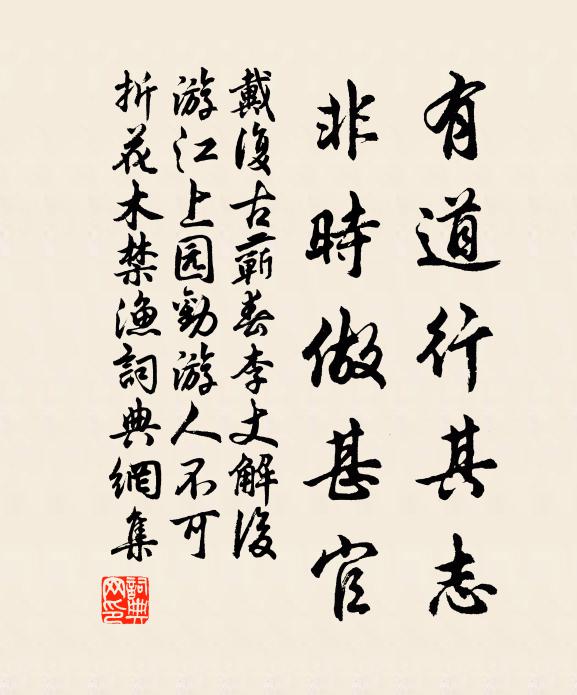 有道行其志
非時做甚官
戴復古蘄春李丈解後
游江上园勸游人不可
折花木禁漁詞典網集
詞典網印